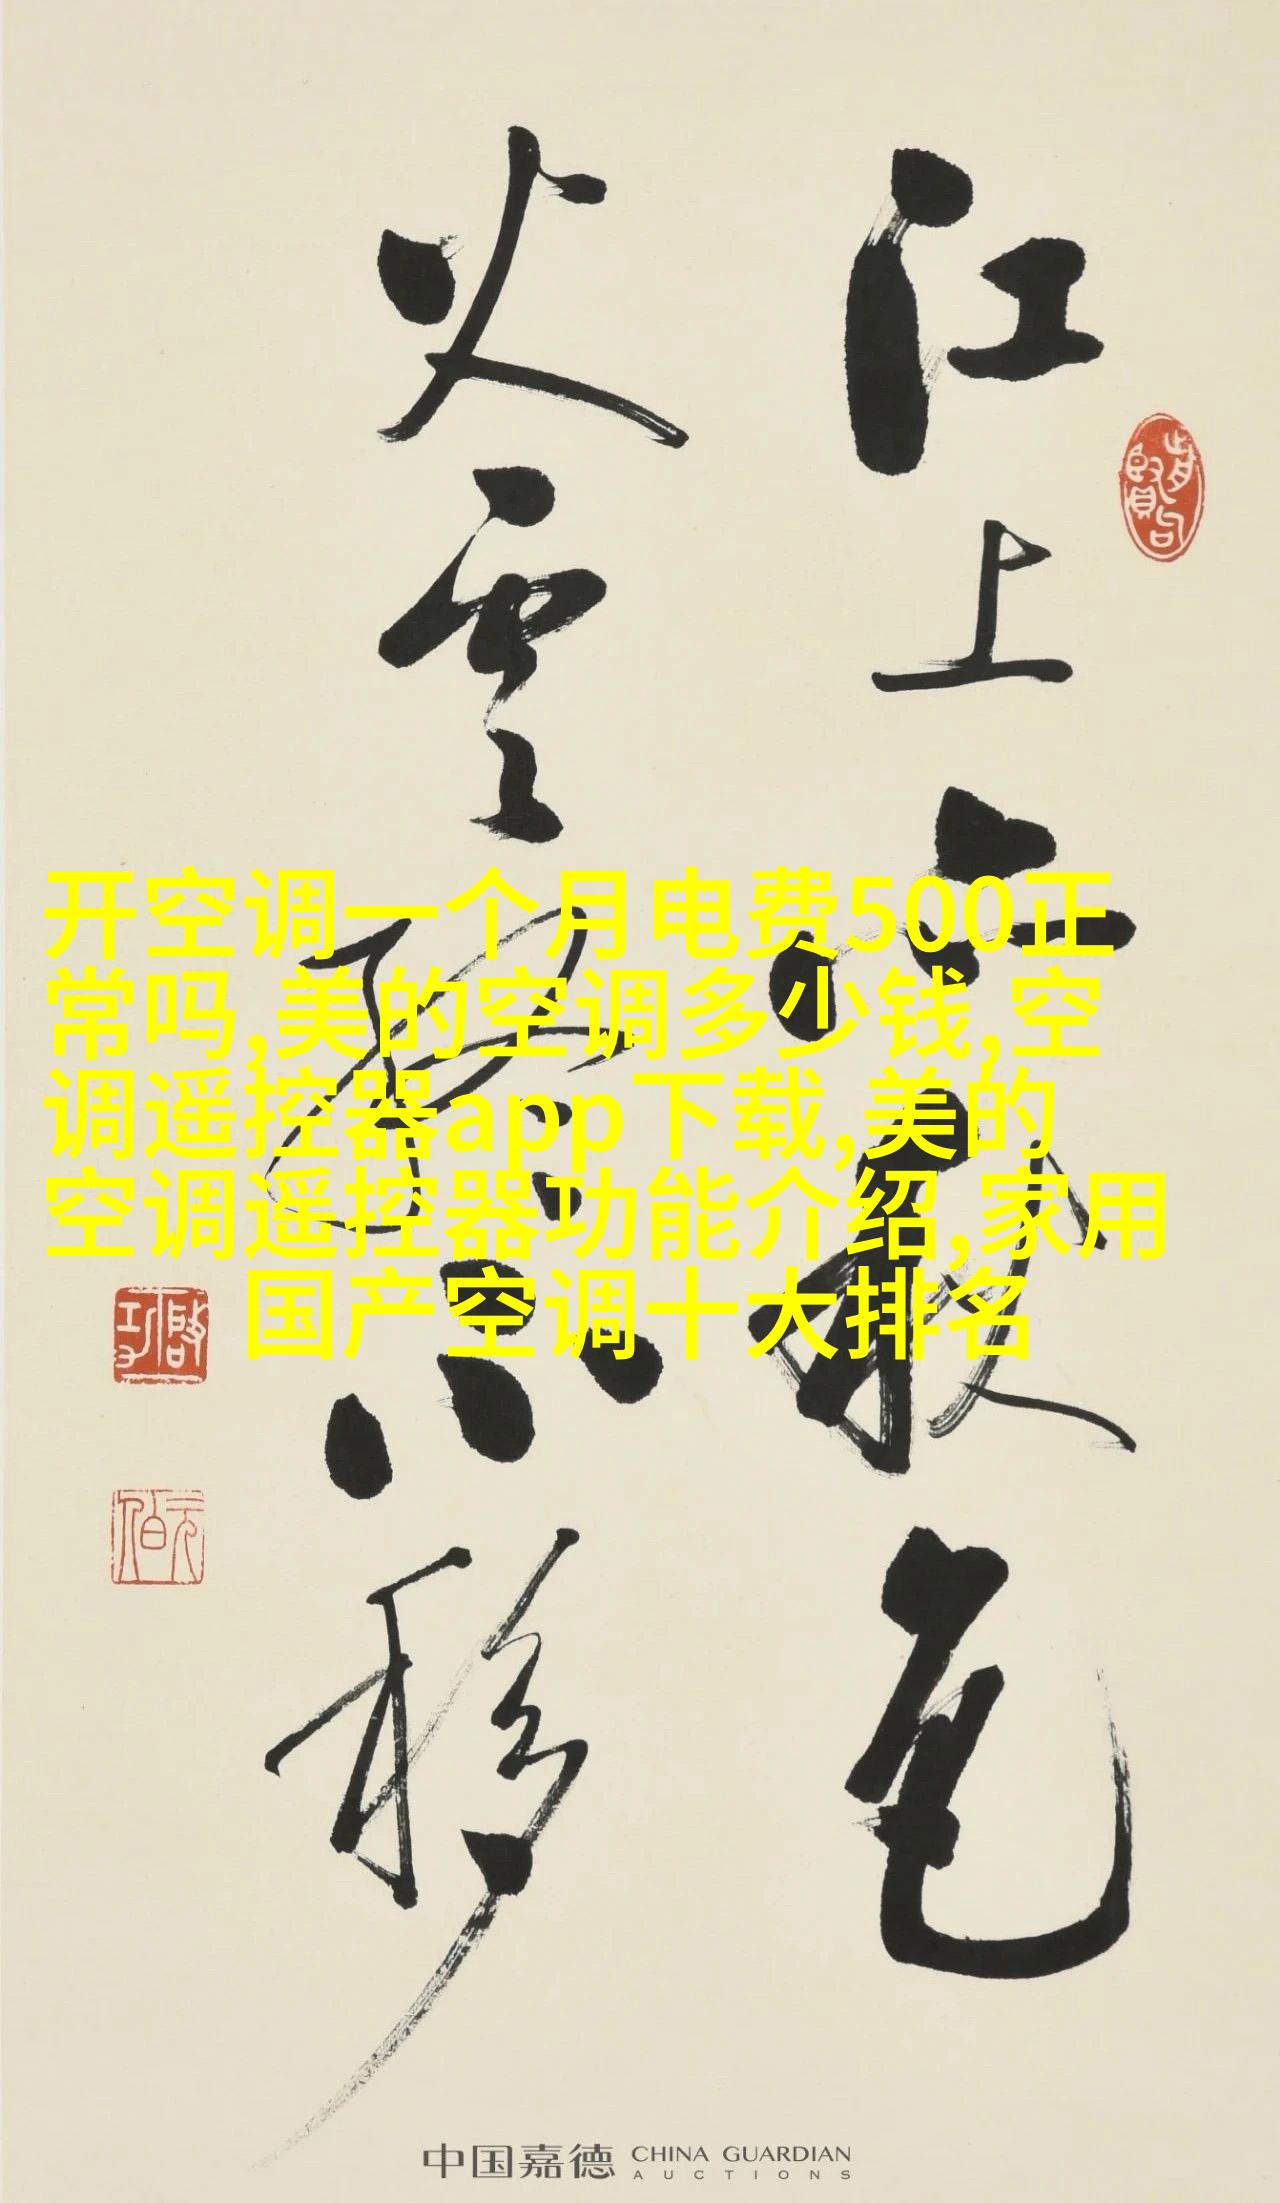 江上亦秋色
火雲終不移
开空调一个月电费500正
常吗,美的空调多少钱,空
调遥控器app下载,美的
空调遥控器功能介绍,家用
国产空调十大排名
啓功
元伯
中国嘉德 CHINA GUARDIAN
AUCTIONS